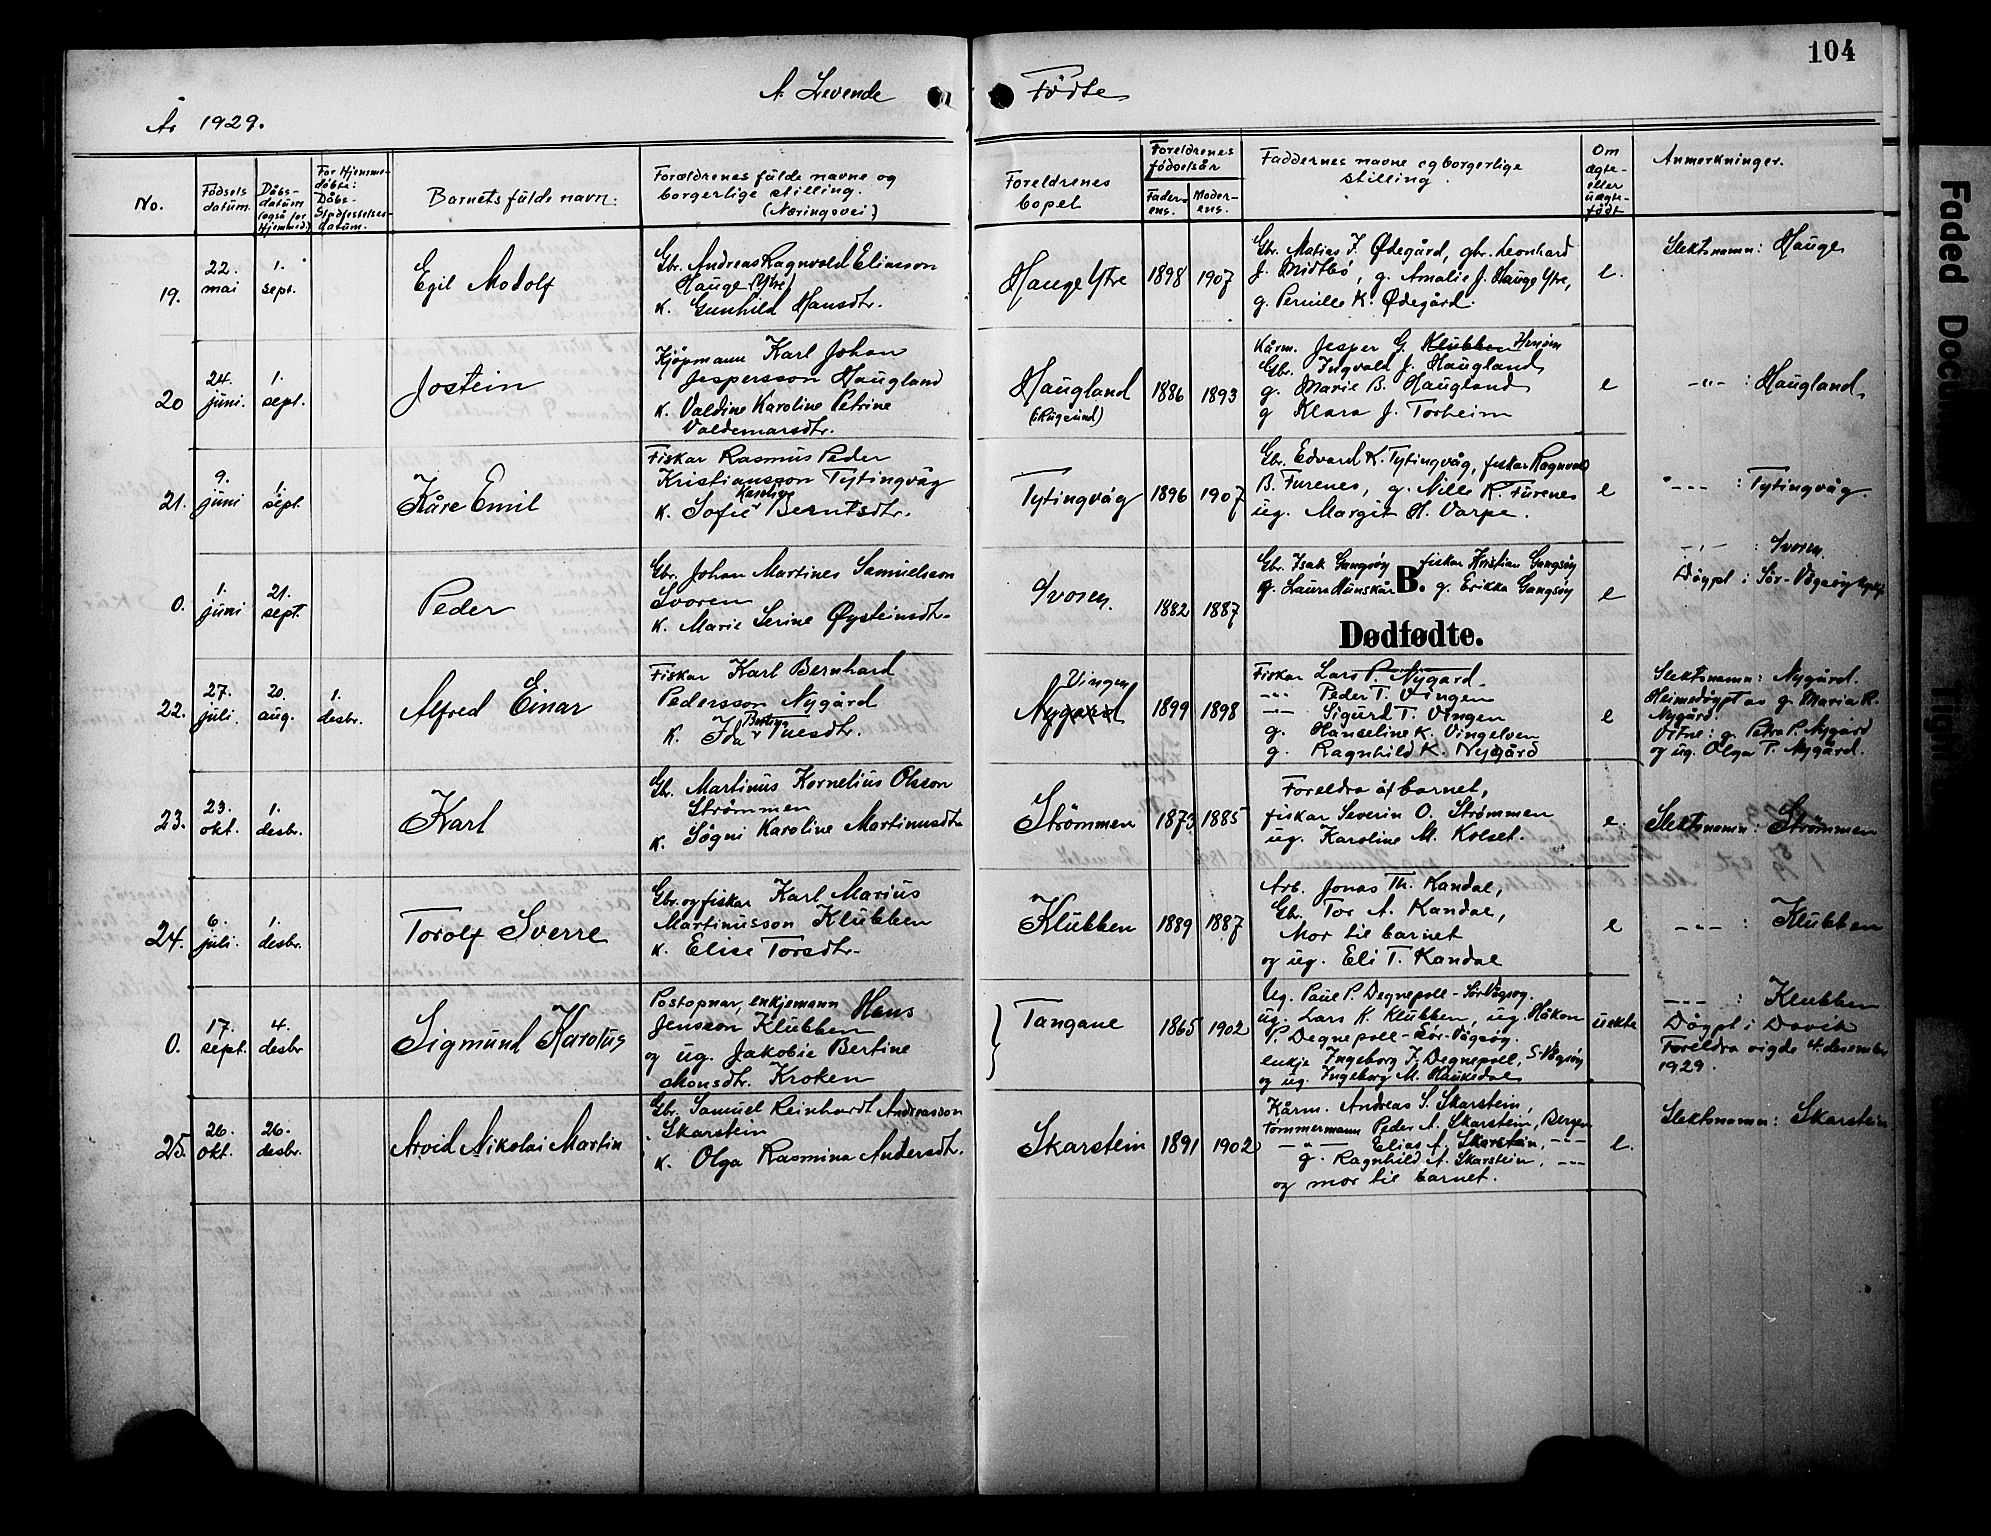 104
A. Levende Fødte
År 1929.
No.
Fødsels datum.
Dåbs-datum (også for Hjemmed.)
For Hjemmedøbte: Dåbs-Stadfestelses-datum.
Barnets fulde navn:
Forældrenes fulde navne og borgerlige stilling. (Næringsvei)
Foreldrenes bopel
Foreldrenes fødselsår
Faderens.
Moderens.
Faddernes navne og borgerlige stilling.
Om ægte- eller uægte-født
Anmerkninger.
19.
22. mai
1. sept.
Egil Modolf
Gbr. Andreas Ragnvald Eliasson
Hauge (Ytre)
K. Gunhild Hansdtr.
Hauge Ytre
1898
1907
Gbr. Matias J. Ødegård, gbr. Leonhard
J. Midtbø, g. Amalie J. Hauge Ytre,
g. Pernille K. Ødegård.
e.
Slektsnamn: Hauge
20
24. juni.
1. sept.
Jostein
Kjøpmann Karl Johan
Jespersson Haugland
K. Valdine Karoline Petrine
Valdemarsdtr.
Haugland
(Rugsund)
1886
1893
Kårm. Jesper G. Klubben
Gbr. Ingvald J. Haugland
g. Marie B. Haugland
g Klara J. Torheim
e
-"- : Haugland
21.
9. juni
1. sept.
Kåre Emil
Fiskar Rasmus Peder
Kristiansson Tytingvåg
K. Sofie Karoline Berntsdtr.
Tytingvåg
1896
1907
Gbr. Edvard K. Tytingvåg, fiskar Ragnvald
B. Furenes, g. Nille K. Furenes
ug. Margit H. Varpe.
e
-"- : Tytingvåg.
0.
1. juni
21. sept.
Peder
Gbr. Johan Martines Samuelsson
Svoren
K. Marie Serine Øysteinsdtr.
Svoren
1882
1887
Gbr. Isak Gangsøy fiskar Kristian Gangsøy
g. Laura Hunskår g. Erikka Gangsøy
B.
Dødfødte.
e
-"- : Svoren
Døypt i Sør-Vågsøy
22.
27. juli.
20. aug.
1. desbr.
Alfred Einar
Fiskar Karl Bernhard
Pedersson Nygård
K. Ida Bertine Tuesdtr.
Vingen
Nygård
1899
1898
Fiskar Lars P. Nygard
-"- Peder T. Vingen
-"- Sigurd T. Vingen
g. Hanseline K. Vingelven
g. Ragnhild K. Nygård
e
Slektsnamn: Nygård.
Heimedøypt av g. Maria R.
Nygård.
Vitne: g. Petra P. Nygård
og ug. Olga T. Nygård.
23.
23. okt.
1. desbr.
Karl
Gbr. Martinus Kornelius Olsson
Strømmen
K. Søgni Karoline Martinusdtr
Strømmen
1873
1885
Foreldra åt barnet,
fiskar Severin O. Strømmen
ug. Karoline M. Kolset.
e.
Slektsnamn: Strømmen
24.
6. juli.
1. desbr.
Torolf Sverre
Gbr. og fiskar Karl Marius
Martinusson Klubben
K. Elise Torsdtr.
Klubben
1889
1887
Arb. Jonas Th. Kandal,
Gbr. Tor A. Kandal,
Mor til barnet
og ug. Eli T. Kandal
e
-"- : Klubben
0.
17. sept.
4. desbr
Sigmund Karolus
Postopnar, enkjemann Hans
Jensson Klubben
og ug. Jakobie Bertine
Monsdtr. Kroken
Tangane
1865
1902
Ug. Paul P. Degnepoll - Sør Vågsøy.
ug. Lars K. Klubben, ug. Håkon
P. Degnepoll - Sør-Vågsøy.
enkje Ingeborg J. Degnepoll, S-Vågsøy
og ug. Ingeborg M. Haukedal
uekte
-"- : Klubben
Døypt i Davik
Foreldra vigde 4. desember
1929.
25.
26. okt.
26. desbr.
Arvid Nikolai Martin
Gbr. Samuel Reinhardt Andreasson
Skarstein
K. Olga Rasmina Andersdtr.
Skarstein
1891
1902
Kårm. Andreas S. Skarstein,
Tømmermann Peder A. Skarstein, Bergen
-"- Elias A. Skarstein, -"-
g. Ragnhild A. Skarstein, -"-
og mor til barnet.
e.
Slektsnamn: Skarstein
Faded Docu
Tight